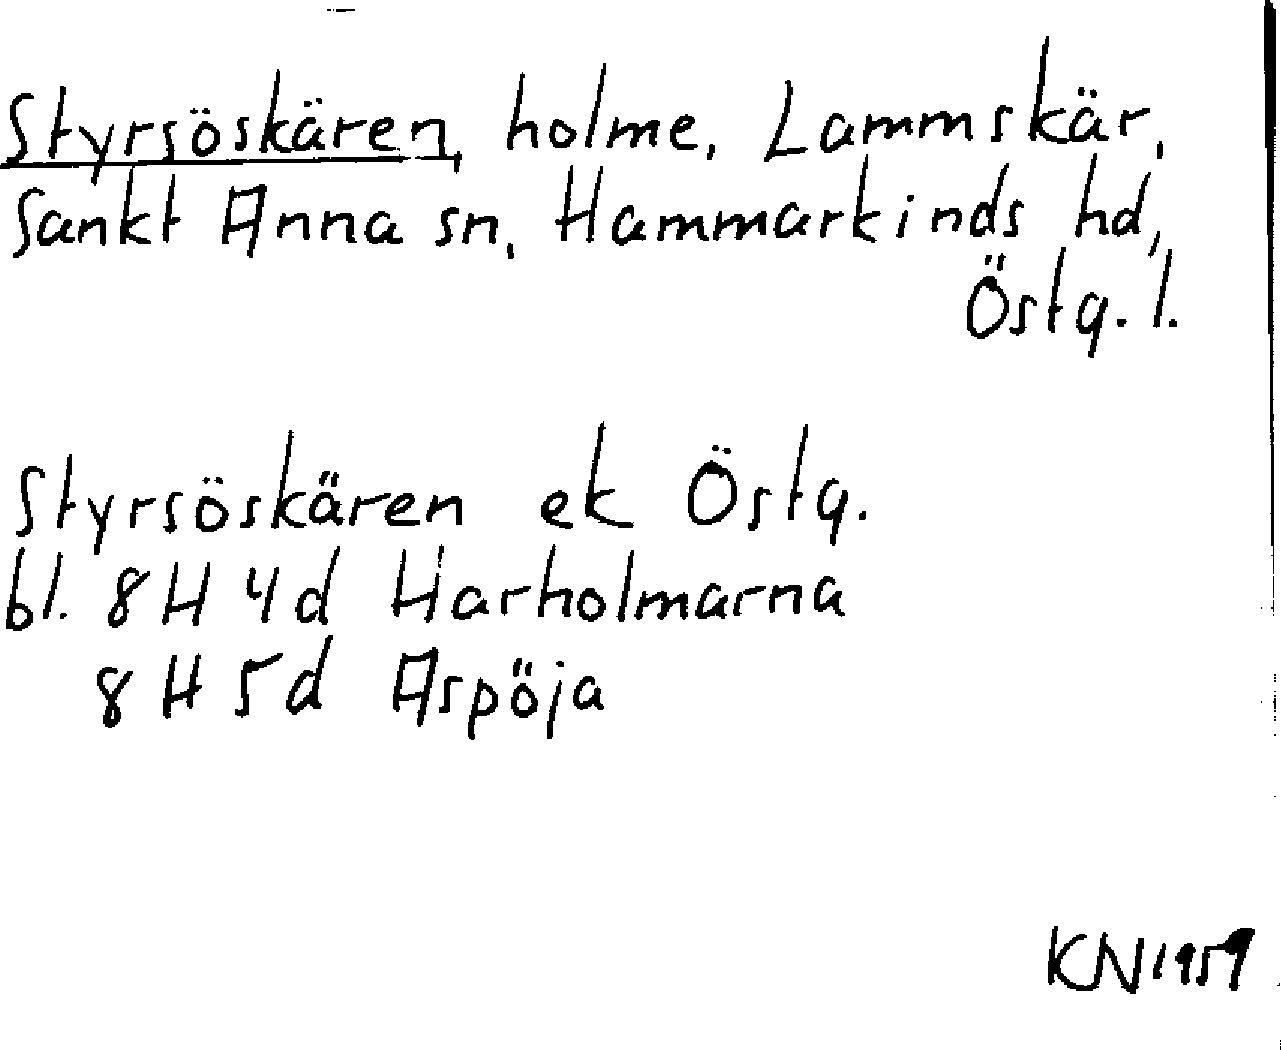 Styrsöskären, holme, Lammskär,
Sankt Anna sn, Hammarkinds hd,
Östg. l.
Styrsöskären ek Östg.
bl. 8H 4d Harholmarna
8H 5d Aspöja
KN 1959